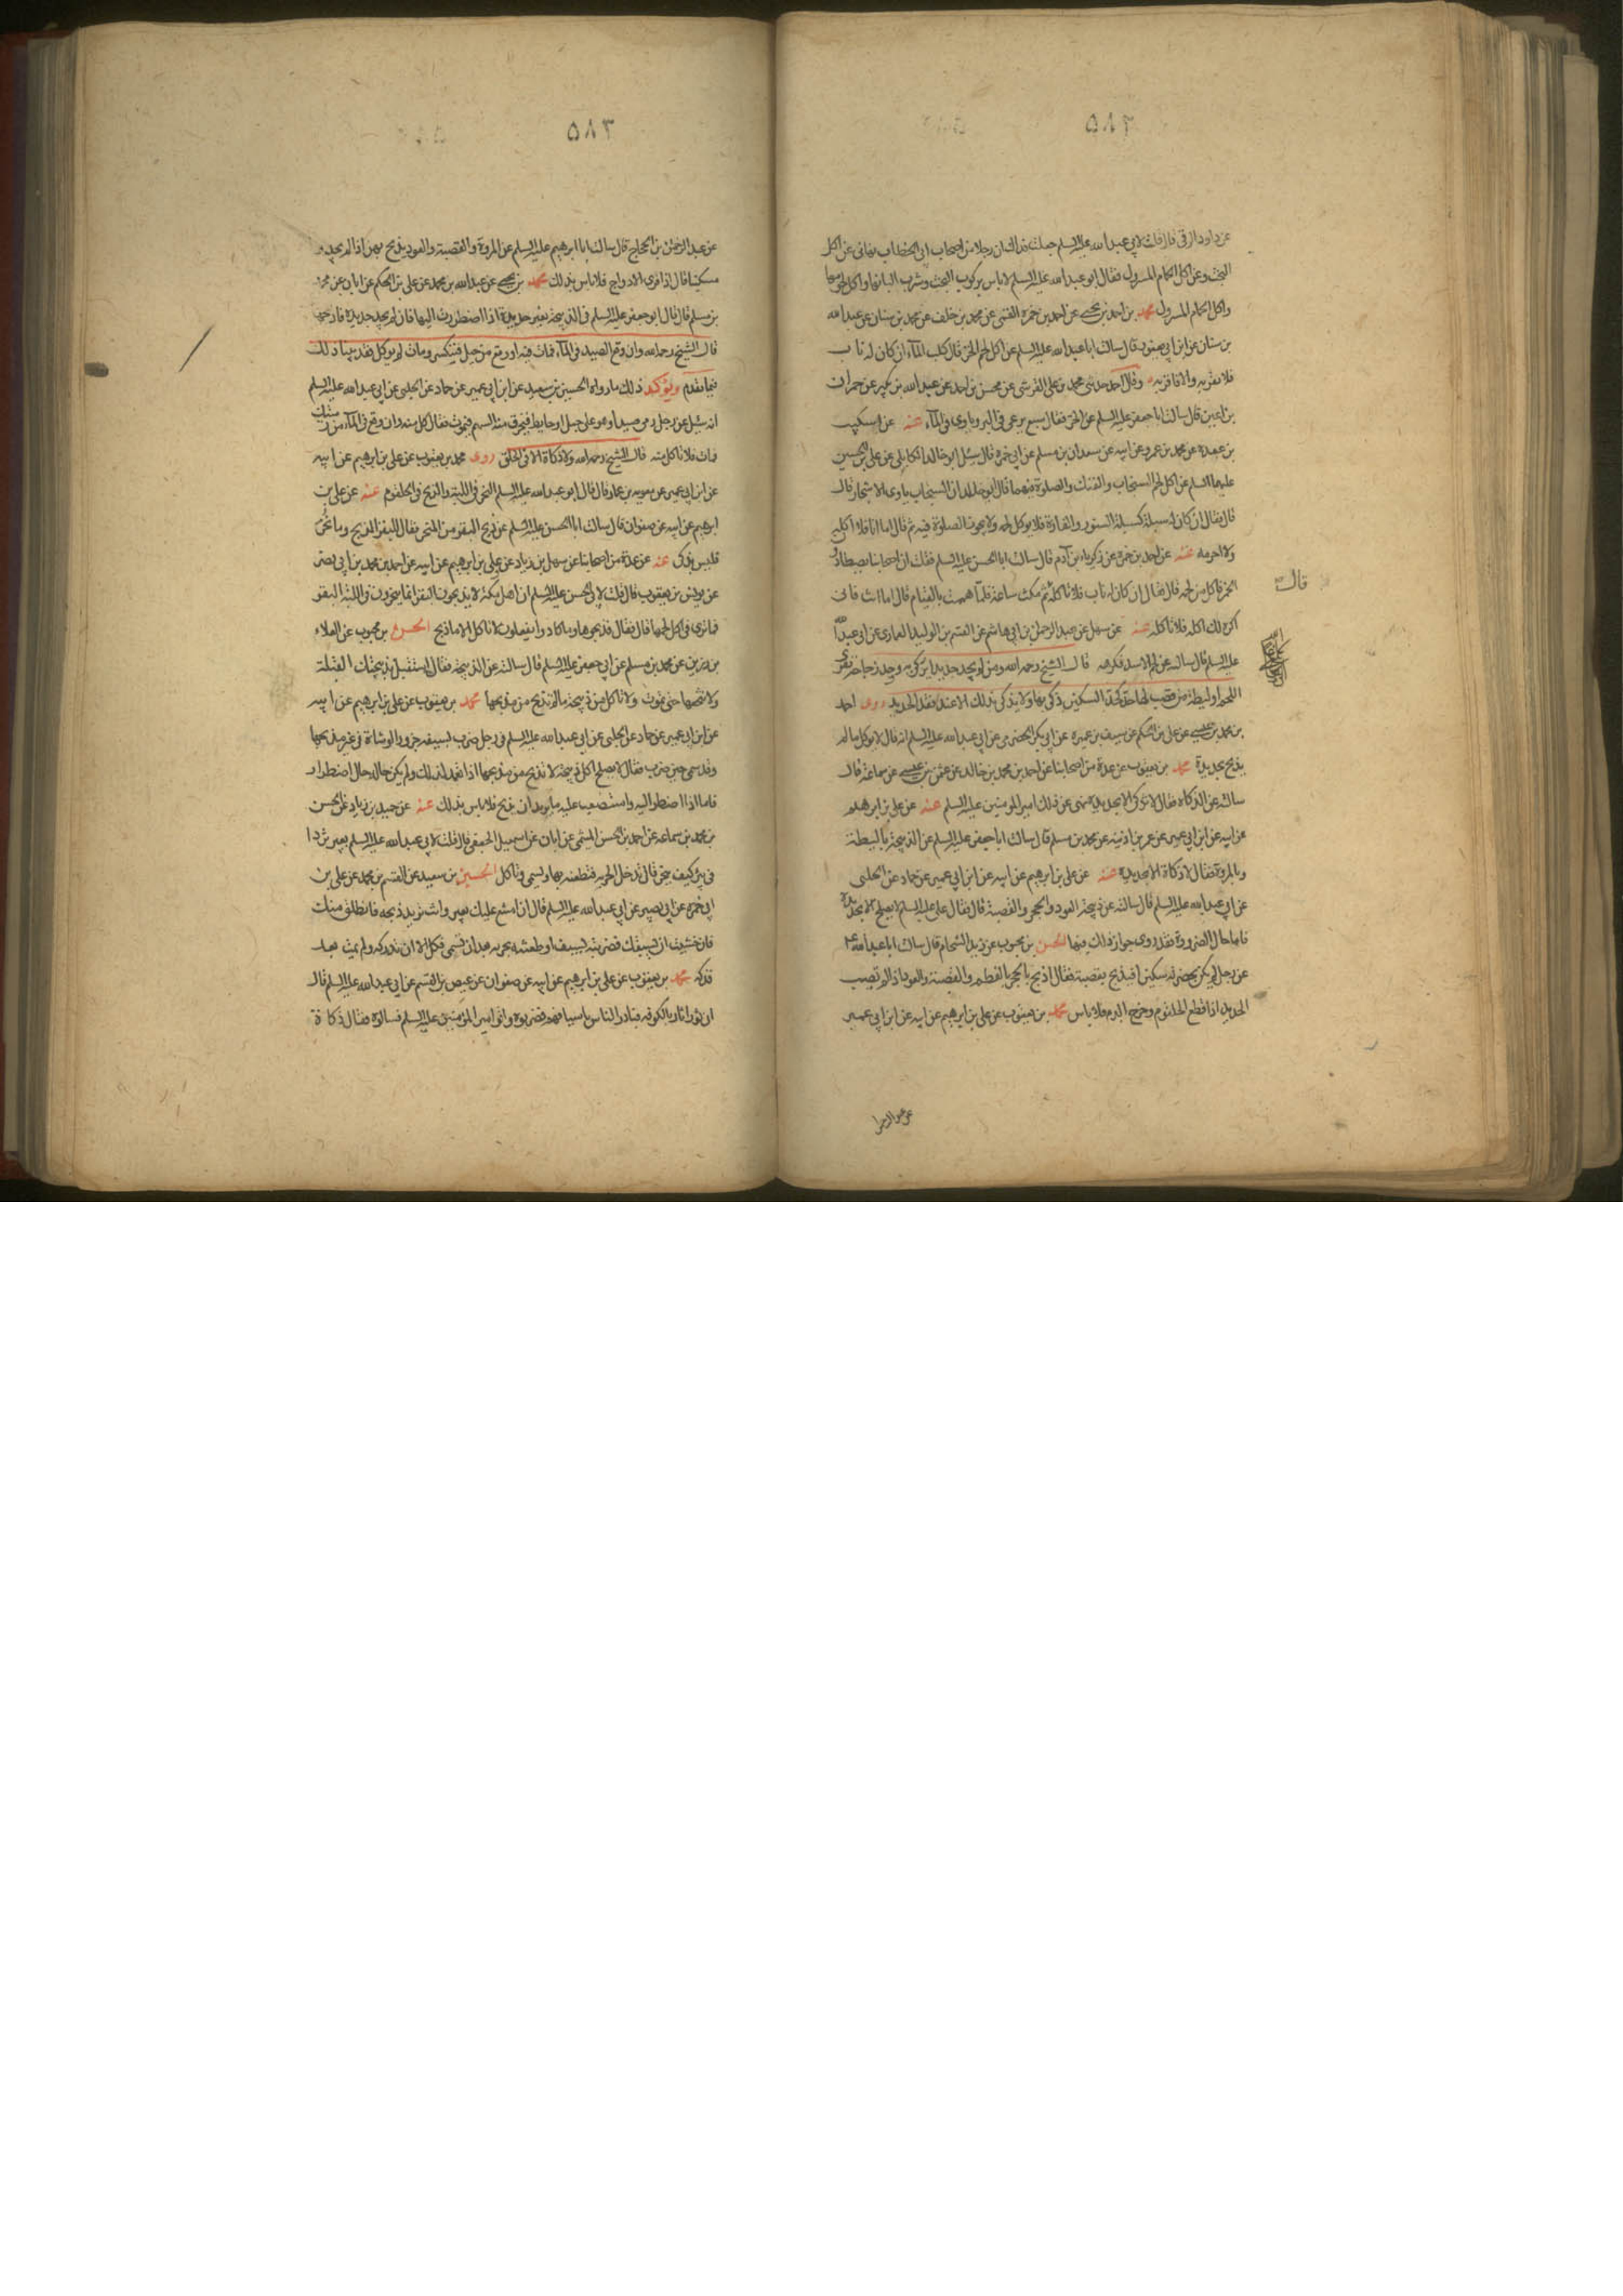 ٥٨٢
عن داود الرقي قال قلت لابي عبد الله عليه السلم جعلت فداك ان رجلا من اصحاب ابي الخطاب نهاني عن اكل
البخت وعن اكل الحمام المسرول فقال ابو عبد الله عليه السلم لا باس بركوب البخت وشرب البانها واكل لحومها
واكل الحمام المسرول محمد بن احمد بن يحيى عن احمد بن حمزة القمي عن محمد بن خلف عن محمد بن سنان عن عبد الله
بن سنان عن ابن ابي يعفور قال سالت ابا عبد الله عليه السلم عن اكل لحم الخز قال كلب الماء ان كان له ناب
فلا تقربه والا فاقربه وقال احمد حدثني محمد بن علي القرشي عن محسن بن احمد عن عبد الله بن بكير عن حمران
بن اعين قال سالت ابا جعفر عليه السلم عن الخز فقال سبع يرعى في البر وياوى في الماء عنه عن السكيت
بن عبدة عن محمد بن عمرو عن ابيه عن سعدان بن مسلم عن ابي حمزة قال سئل ابو خالد الكابلي عن علي بن الحسين
عليهما السلم عن اكل لحم السنجاب والفنك والصلوة فيهما فقال ابو خالد ان السنجاب ياوى الاشجار قال
قال فقال ان كان له سبلة كسبلة السنور والفارة فلا يوكل لحمه ولا يجوز الصلوة فيه ثم قال اما انا فلا اكله
ولا احرمه عنه عن احمد بن حمزة عن زكريا بن آدم قال سالت ابا الحسن عليه السلم فقلت ان اصحابنا يصطادون
الخز فاكل من لحمه قال فقال ان كان له ناب فلا تاكله ثم مكث ساعة فلما هممت بالقيام قال اما انت فاني
اكره لك اكله فلا تاكله عنه عن سهل عن عبد الرحمن بن ابي هاشم عن القسم بن الوليد العماري عن ابي عبد الله
عليه السلم قال سالته عن لحم الاسد فكرهه قال الشيخ رحمه الله ومن لم يجد حديدا يذكي به ووجد زجاجة تفري
اللحم او ليطة من قصب لها حد كحد السكين ذكى بها ولا يذكى بذلك الا عند فقد الحديد روى احمد
بن محمد بن عيسى عن علي بن الحكم عن سيف بن عميرة عن ابي بكر الحضرمي عن ابي عبد الله عليه السلم انه قال لا يوكل ما لم
يذبح بحديدة محمد بن يعقوب عن عدة من اصحابنا عن احمد بن محمد بن خالد عن عثمن بن عيسى عن سماعة قال
سالته عن الذكاة فقال لا تذك الا بحديدة نهى عن ذلك امير المومنين عليه السلم عنه عن علي بن ابرهيم
عن ابيه عن ابن ابي عمير عن عمر بن اذينة عن محمد بن مسلم قال سالت ابا جعفر عليه السلم عن الذبيحة بالليطة
وبالمروة فقال لا ذكاة الا بحديدة عنه عن علي بن ابرهيم عن ابيه عن ابن ابي عمير عن حماد عن الحلبي
عن ابي عبد الله عليه السلم قال سالته عن ذبيحة العود والحجر والقصبة قال فقال علي عليه السلم لا يصلح الا بحديدة
فاما حال الضرورة فقد روى جواز ذلك فيها الحسن بن محبوب عن زيد الشحام قال سالت ابا عبد الله ع
عن رجل لم يكن بحضرته سكين افيذبح بقصبة فقال اذبح بالحجر بالعظم والقصبة والعود اذا لم تصب
الحديد اذا قطع الحلقوم وخرج الدم فلا باس محمد بن يعقوب عن علي بن ابرهيم عن ابيه عن ابن ابي عمير
عن عبد الرحمن
قال
٥٨٣
عن عبد الرحمن بن الحجاج قال سالت ابا ابرهيم عليه السلم عن المروة والقصبة والعود يذبح بهن اذا لم يجدوا
سكينا قال اذا فرى الاوداج فلا باس بذلك محمد بن يحيى عن عبد الله بن محمد عن علي بن الحكم عن ابان عن محمد
بن مسلم قال قال ابو جعفر عليه السلم في الذبيحة بغير حديدة اذا اضطررت اليها فان لم تجد حديدة فاذبحها
قال الشيخ رحمه الله وان وقع الصيد في الماء فمات فيه او وقع من جبل فتكسر ومات لم يوكل فقد بينا ذلك
فيما تقدم ويؤكد ذلك ما رواه الحسين بن سعيد عن ابن ابي عمير عن حماد عن الحلبي عن ابي عبد الله عليه السلم
انه سئل عن رجل رمى صيدا وهو على جبل او حايط فيخرق فيه السهم فيموت فقال كل منه وان وقع في الماء من رميتك
فمات فلا تاكل منه قال الشيخ رحمه الله ولا ذكاة الا في الحلق روى محمد بن يعقوب عن علي بن ابرهيم عن ابيه
عن ابن ابي عمير عن معوية بن عمار قال قال ابو عبد الله عليه السلم النحر في اللبة والذبح في الحلقوم عنه عن علي بن
ابرهيم عن ابيه عن صفوان قال سالت ابا الحسن عليه السلم عن ذبح البقر من المنحر فقال للبقر الذبح وما نحر
فليس بذكي عنه عن عدة من اصحابنا عن سهل بن زياد عن علي بن ابرهيم عن ابيه عن احمد بن محمد بن ابي نصر
عن يونس بن يعقوب قال قلت لابي الحسن عليه السلم ان اهل مكة لا يذبحون البقر انما ينحرون في اللبة البقر
فما ترى في اكل لحمها قال فقال فذبحوها وما كادوا يفعلون لا تاكل الا ما ذبح الحسن بن محبوب عن العلاء
بن رزين عن محمد بن مسلم عن ابي جعفر عليه السلم قال سالته عن الذبيحة فقال استقبل بذبيحتك القبلة
ولا تنخعها حتى تموت ولا تاكل من ذبيحة ما لم تذبح من مذبحها محمد بن يعقوب عن علي بن ابرهيم عن ابيه
عن ابن ابي عمير عن حماد عن الحلبي عن ابي عبد الله عليه السلم في رجل ضرب بسيفه جزورا او شاة في غير مذبحها
وقد سمى حين ضرب فقال لا يصلح اكل ذبيحة لا تذبح من مذبحها اذا تعمد لذلك ولم يكن حاله حال اضطرار
فاما اذا اضطر اليه واستصعب عليه ما يريد ان يذبح فلا باس بذلك عنه عن حميد بن زياد عن الحسن
بن محمد بن سماعة عن احمد بن الحسن الميثمي عن ابان عن اسمعيل الجعفي قال قلت لابي عبد الله عليه السلم بعير تردا
في بئر كيف ينحر قال تدخل الحربة فتطعنه بها وتسمي وتاكل الحسين بن سعيد عن القسم بن محمد عن علي بن
ابي حمزة عن ابي بصير عن ابي عبد الله عليه السلم قال ان امتنع عليك بعير وانت تريد ذبحه فانطلق منك
فان خشيت ان يسبقك فضربته بسيف او طعنته بحربة بعد ان تسمي فكل الا ان تدركه ولم يمت بعد
فذكه محمد بن يعقوب عن علي بن ابرهيم عن ابيه عن صفوان عن عيص بن القسم عن ابي عبد الله عليه السلم قال
ان ثورا ثار بالكوفة فبادر الناس باسيافهم فضربوه واتوا امير المؤمنين عليه السلم فسالوه فقال ذكاة